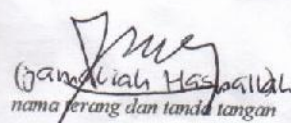 (Jamaliah Hasballah
nama terang dan tanda tangan